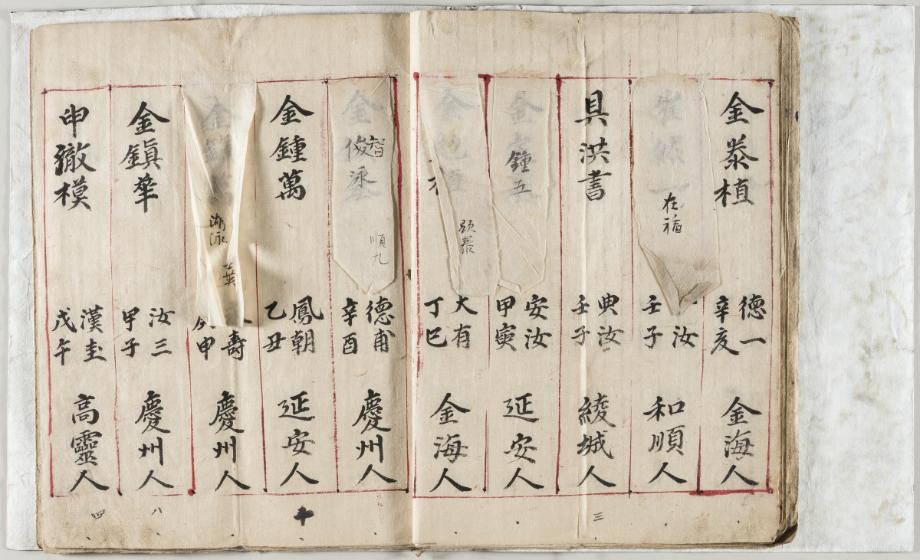 金泰植
德一
辛亥
金海人
在禧
汝
壬子
和順人
具洪書
典汝
壬子
綾城人
三
鍾五
安汝
甲寅
延安人
大有
丁巳
金海人
智
俊
順九
德甫
辛酉
慶州人
金鍾萬
鳳朝
乙丑
延安人
十
壽
申
慶州人
金鎭華
汝三
甲子
慶州人
八
申徹模
漢圭
戊午
高靈人
四